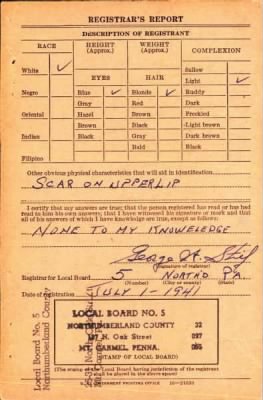 REGISTRAR'S REPORT
DESCRIPTION OF REGISTRANT
RACE HEIGHT (Approx.) WEIGHT (Approx.) COMPLEXION
White ✓ Sallow
EYES HAIR Light ✓
Negro Blue ✓ Blonde ✓ Ruddy
Gray Red Dark
Oriental Hazel Brown Freckled
Brown Black Light brown
Indian Black Gray Dark brown
Bald Black
Filipino
Other obvious physical characteristics that will aid in identification
SCAR ON UPPERLIP
I certify that my answers are true; that the person registered has read or has had
read to him his own answers; that I have witnessed his signature or mark and that
all of his answers of which I have knowledge are true, except as follows:
NONE TO MY KNOWELEDGE
George
(Signature of registrar)
Registrar for Local Board 5 NORTHD PA.
(Number) (City or county) (State)
Date of registration JULY 1-1941
LOCAL BOARD NO. 5
NORTHUMBERLAND COUNTY 32
N. OAK STREET 097
MT. CARMEL, PENNA. 005
(STAMP OF LOCAL BOARD)
(The stamp of the Local Board having jurisdiction of the registrant
shall be placed in the above space)
U. S. GOVERNMENT PRINTING OFFICE 16—21630
Local Board No. 5
Northumberland County